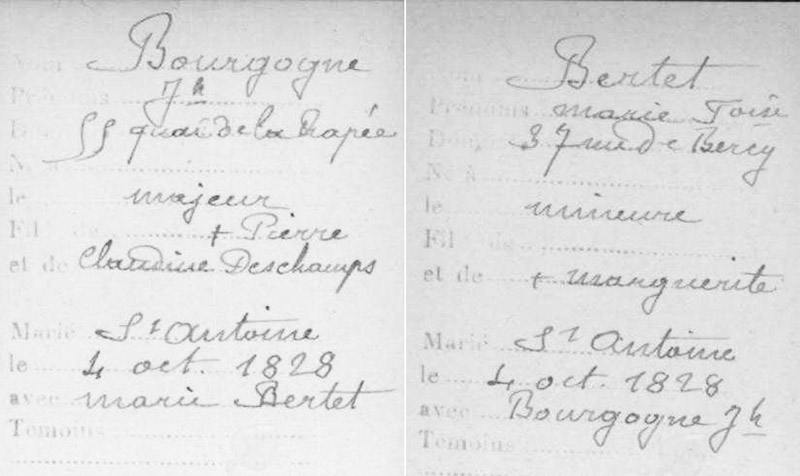 Nom Bourgogne
Prénoms Jh
Dom. 55 quai de la Rapée
Né à
le majeur
Fil de + Pierre
et de Claudine Deschamps
Marié St Antoine
le 4 oct. 1828
avec marie Bertet
Témoins
Nom Bertet
Prénoms marie Foise
Dom. 37 rue de Bercy
Né à
le mineure
Fil de
et de + marguerite
Marié St Antoine
le 4 oct. 1828
avec Bourgogne Jh
Témoins